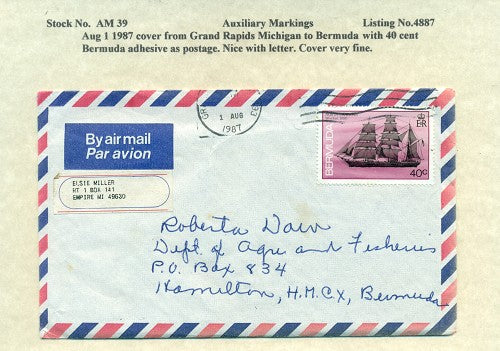 Stock No. AM 39 Auxiliary Markings Listing No.4887
Aug 1 1987 cover from Grand Rapids Michigan to Bermuda with 40 cent
Bermuda adhesive as postage. Nice with letter. Cover very fine.
By air mail
Par avion
1 AUG
1987
BERMUDA
ER
40c
ELSIE MILLER
RT 1 BOX 141
EMPIRE MI 49630
Roberta Daw
Dept. of Agre and Fisheries
P.O. Box 834
Hamilton, H.M.CX, Bermuda